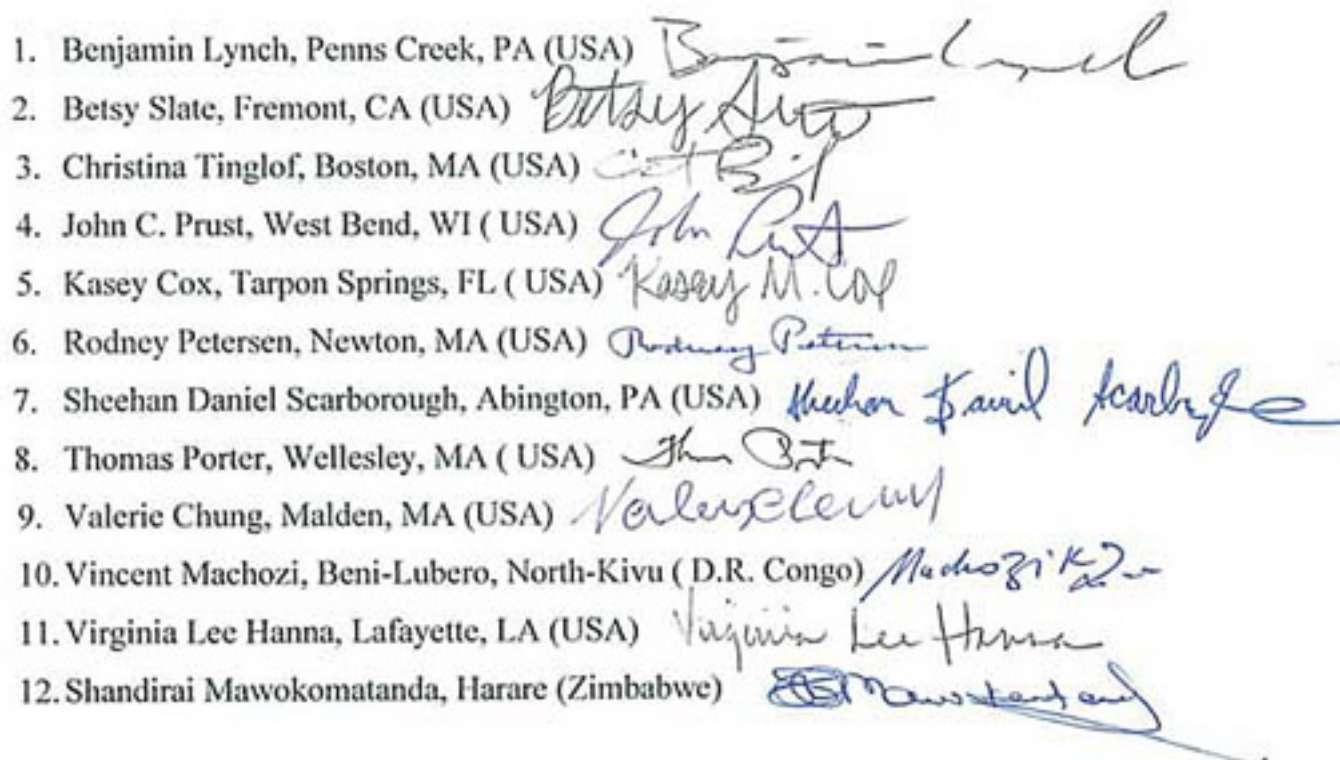 1. Benjamin Lynch, Penns Creek, PA (USA) Benjamin Lynch
2. Betsy Slate, Fremont, CA (USA) Betsy
3. Christina Tinglof, Boston, MA (USA)
4. John C. Prust, West Bend, WI ( USA) John Prust
5. Kasey Cox, Tarpon Springs, FL ( USA) Kasey M. Cox
6. Rodney Petersen, Newton, MA (USA) Rodney Petersen
7. Sheehan Daniel Scarborough, Abington, PA (USA) Sheehan Daniel
8. Thomas Porter, Wellesley, MA ( USA)
9. Valerie Chung, Malden, MA (USA) Valerie Chung
10. Vincent Machozi, Beni-Lubero, North-Kivu ( D.R. Congo) Machozi
11. Virginia Lee Hanna, Lafayette, LA (USA) Virginia Lee Hanna
12. Shandirai Mawokomatanda, Harare (Zimbabwe)